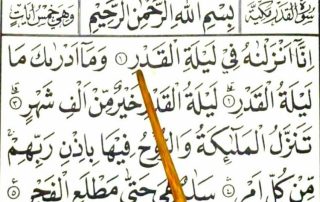 سورة القدر مكية بسم الله الرحمن الرحيم وهي خمس آيات
إِنَّا أَنْزَلْنٰهُ فِي لَيْلَةِ الْقَدْرِ ۝١ وَمَا أَدْرٰىكَ مَا
لَيْلَةُ الْقَدْرِ ۝٢ لَيْلَةُ الْقَدْرِ خَيْرٌ مِّنْ اَلْفِ شَهْرٍ ۝٣
تَنَزَّلُ الْمَلٰٓئِكَةُ وَالرُّوْحُ فِيْهَا بِاِذْنِ رَبِّهِمْ
مِّنْ كُلِّ اَمْرٍ ۝٤ سَلٰمٌ هِيَ حَتّٰى مَطْلَعِ الْفَجْرِ ۝٥